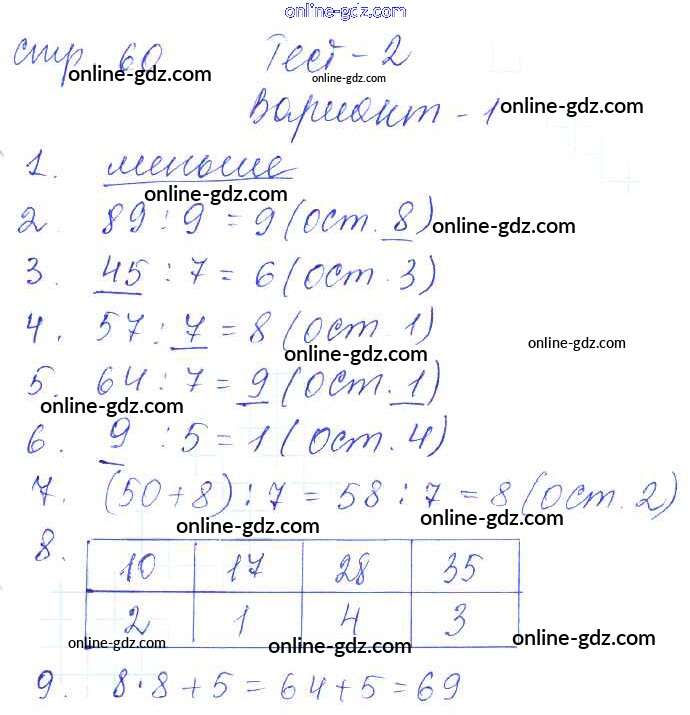 online-gdz.com
online-gdz.com
стр 60 Тест - 2
online-gdz.com online-gdz.com
Вариант - 1
online-gdz.com
1. меньше
online-gdz.com
2. 89 : 9 = 9 (ост. 8)
online-gdz.com
3. 45 : 7 = 6 (ост. 3)
4. 57 : 7 = 8 (ост. 1)
online-gdz.com online-gdz.com
5. 64 : 7 = 9 (ост. 1)
online-gdz.com online-gdz.com
6. 9 : 5 = 1 (ост. 4)
7. (50 + 8) : 7 = 58 : 7 = 8 (ост. 2)
online-gdz.com online-gdz.com
8.
10 17 28 35
2 1 4 3
online-gdz.com online-gdz.com online-gdz.com
9. 8 · 8 + 5 = 64 + 5 = 69